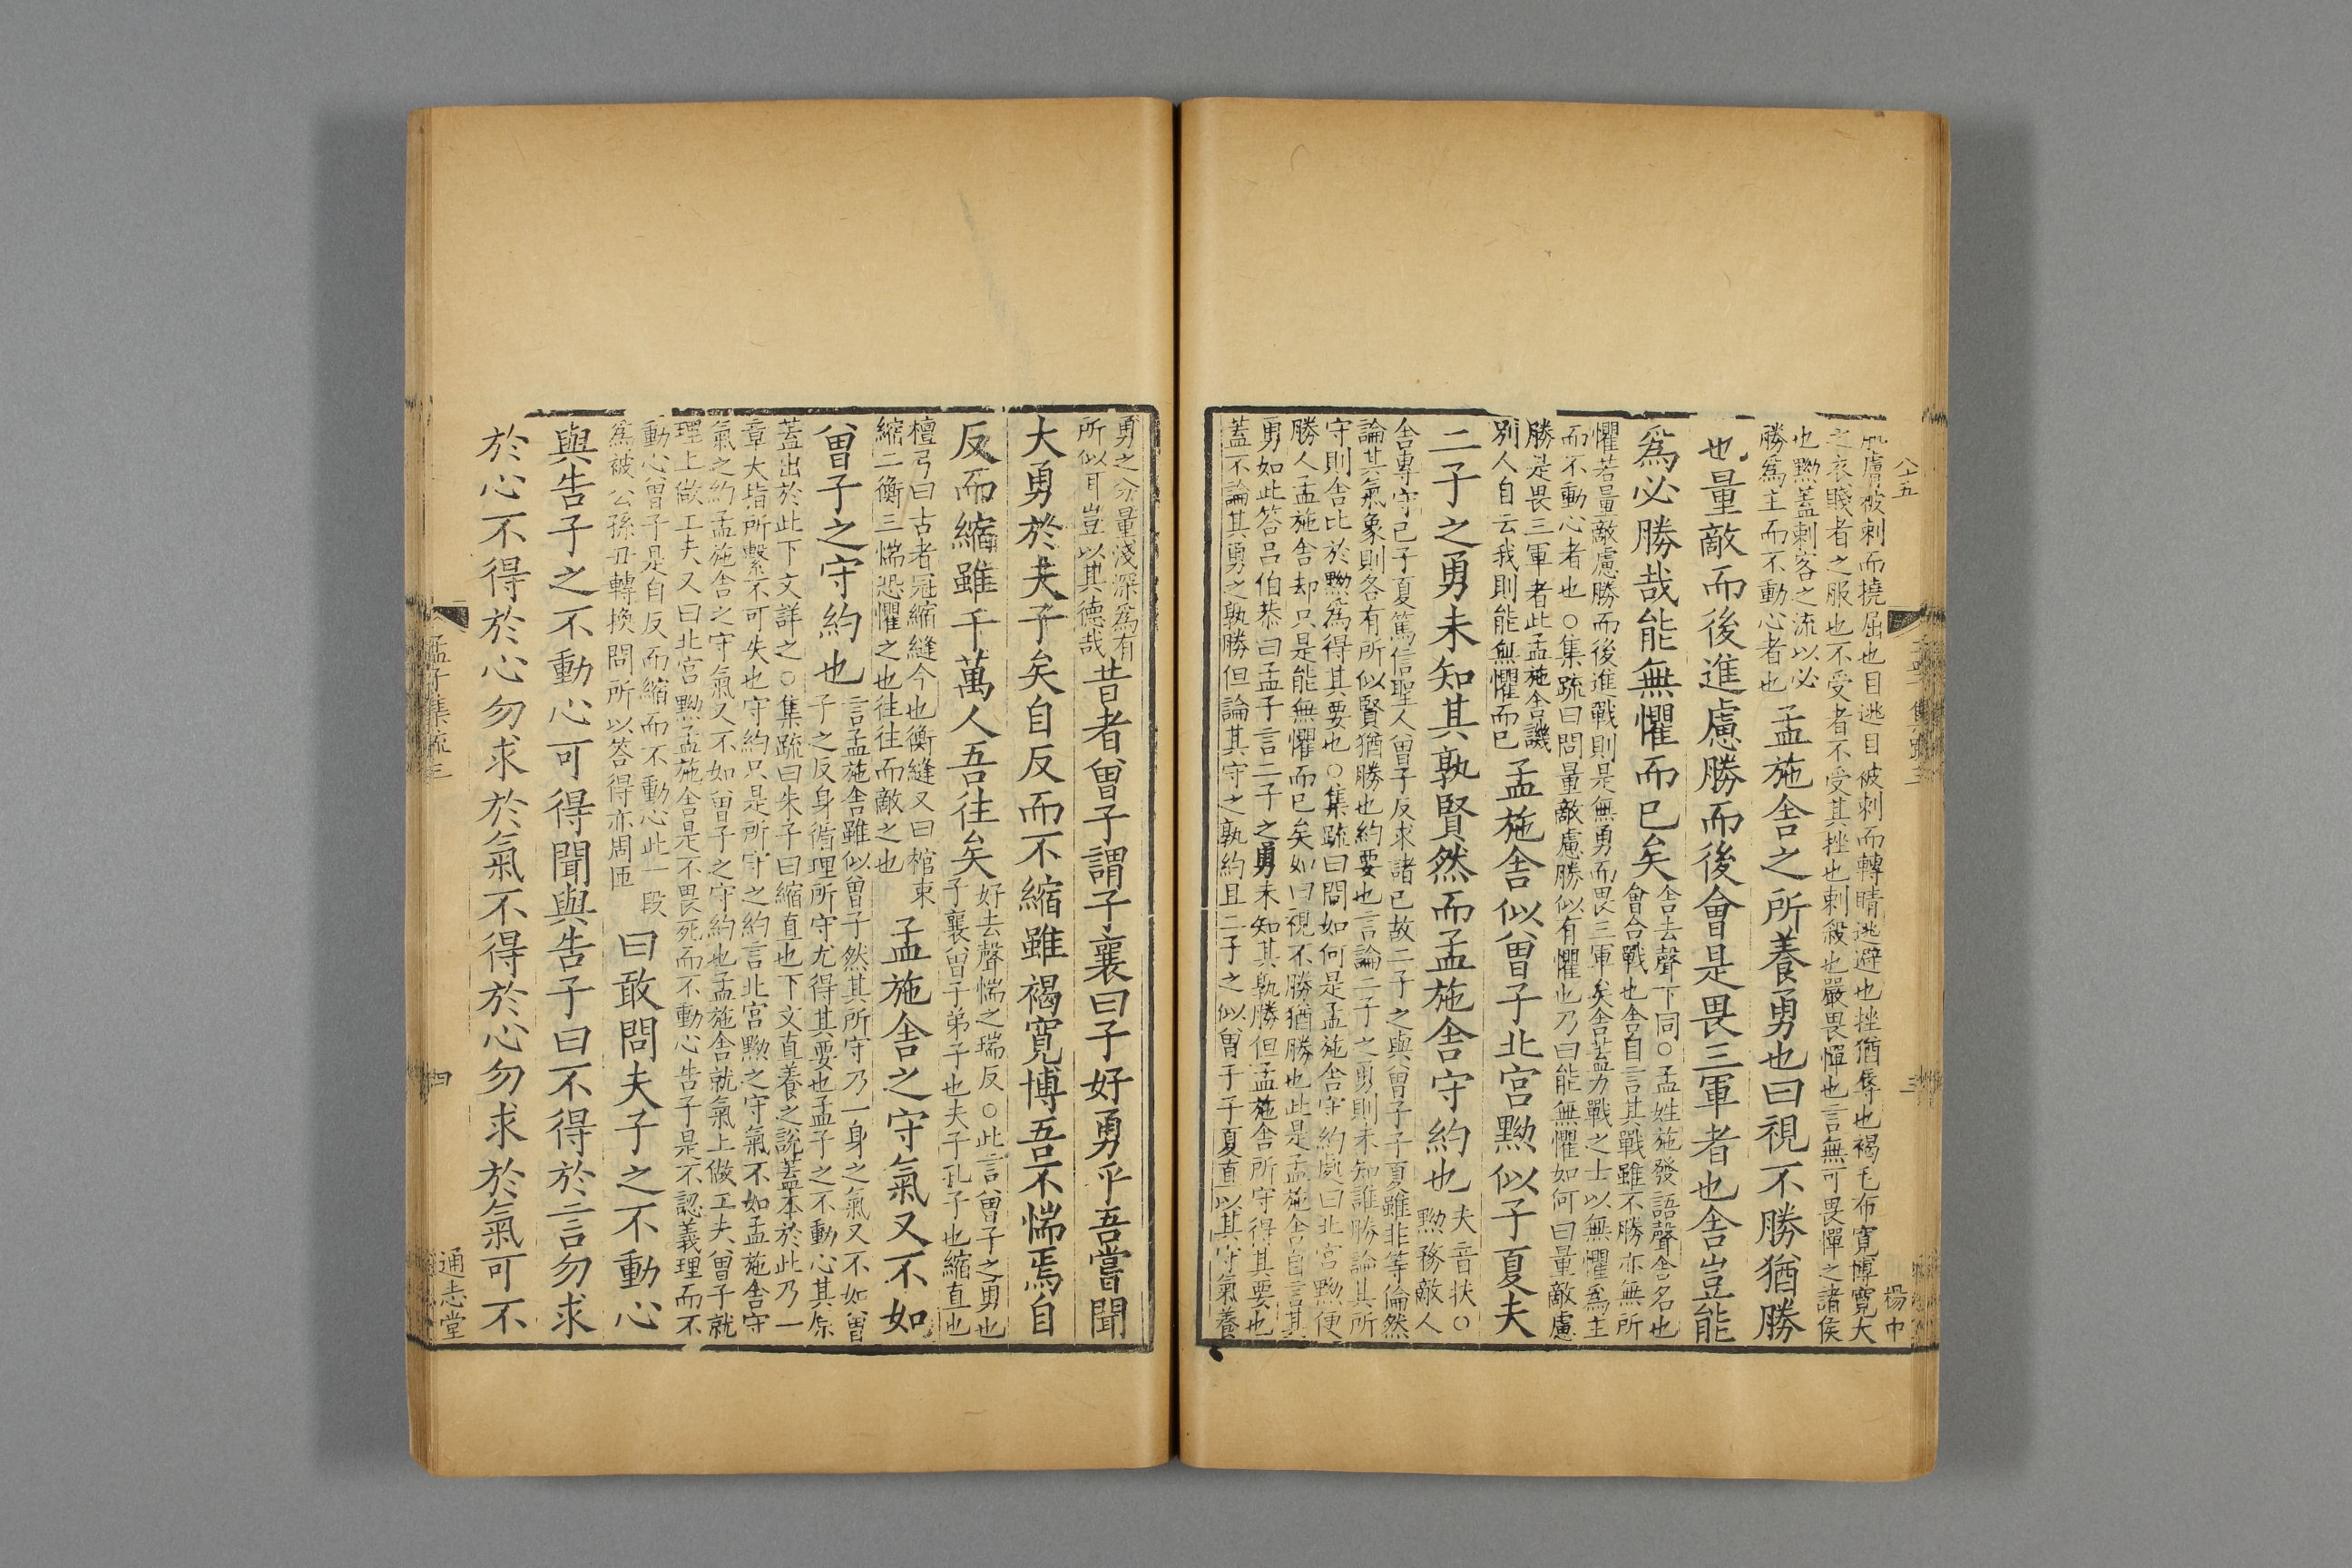 八十五
膚被刺而撓屈也目逃目被刺而轉睛逃避也挫猶辱也褐毛布寛博寛大
之衣賤者之服也不受者不受其挫也刺殺也嚴畏憚也言無可畏憚之諸侯
也黝蓋刺客之流以必
勝爲主而不動心者也
孟施舍之所養勇也曰視不勝猶勝
也量敵而後進慮勝而後會是畏三軍者也舍豈能
爲必勝哉能無懼而已矣
舍去聲下同○孟姓施發語聲舍名也
會合戰也舍自言其戰雖不勝亦無所
懼若量敵慮勝而後進戰則是無勇而畏三軍矣舍蓋力戰之士以無懼爲主
而不動心者也○集疏曰問量敵慮勝似有懼也乃曰能無懼如何曰量敵慮
勝是畏三軍者此孟施舍譏
別人自云我則能無懼而已
孟施舍似曾子北宮黝似子夏夫
二子之勇未知其孰賢然而孟施舍守約也
夫音扶○
黝務敵人
舍專守己子夏篤信聖人曾子反求諸己故二子之與曾子子夏雖非等倫然
論其氣象則各有所似賢猶勝也約要也言論二子之勇則未知誰勝論其所
守則舍比於黝爲得其要也○集疏曰問如何是孟施舍守約處曰北宮黝便
勝人孟施舍却只是能無懼而已矣如曰視不勝猶勝也此是孟施舍自言其
勇如此答呂伯恭曰孟子言二子之勇未知其孰勝但孟施舍所守得其要也
蓋不論其勇之孰勝但論其守之孰約且二子之似曾子子夏直以其守氣養
三
楊中
勇之分量淺深爲有
所似耳豈以其德哉
昔者曾子謂子襄曰子好勇乎吾嘗聞
大勇於夫子矣自反而不縮雖褐寛博吾不惴焉自
反而縮雖千萬人吾往矣
好去聲惴之瑞反○此言曾子之勇也
子襄曾子弟子也夫子孔子也縮直也
檀弓曰古者冠縮縫今也衡縫又曰棺束
縮二衡三惴恐懼之也往往而敵之也
孟施舍之守氣又不如
曾子之守約也
言孟施舍雖似曾子然其所守乃一身之氣又不如曾
子之反身循理所守尤得其要也孟子之不動心其原
蓋出於此下文詳之○集疏曰朱子曰縮直也下文直養之說蓋本於此乃一
章大指所繫不可失也守約只是所守之約言北宮黝之守氣不如孟施舍守
氣之約孟施舍之守氣又不如曾子之守約也孟施舍就氣上做工夫曾子就
理上做工夫又曰北宮黝孟施舍是不畏死而不動心告子是不認義理而不
動心曾子是自反而縮而不動心此一段
爲被公孫丑轉換問所以答得亦周匝
曰敢問夫子之不動心
與告子之不動心可得聞與告子曰不得於言勿求
於心不得於心勿求於氣不得於心勿求於氣可不
孟子集疏三
四
通志堂